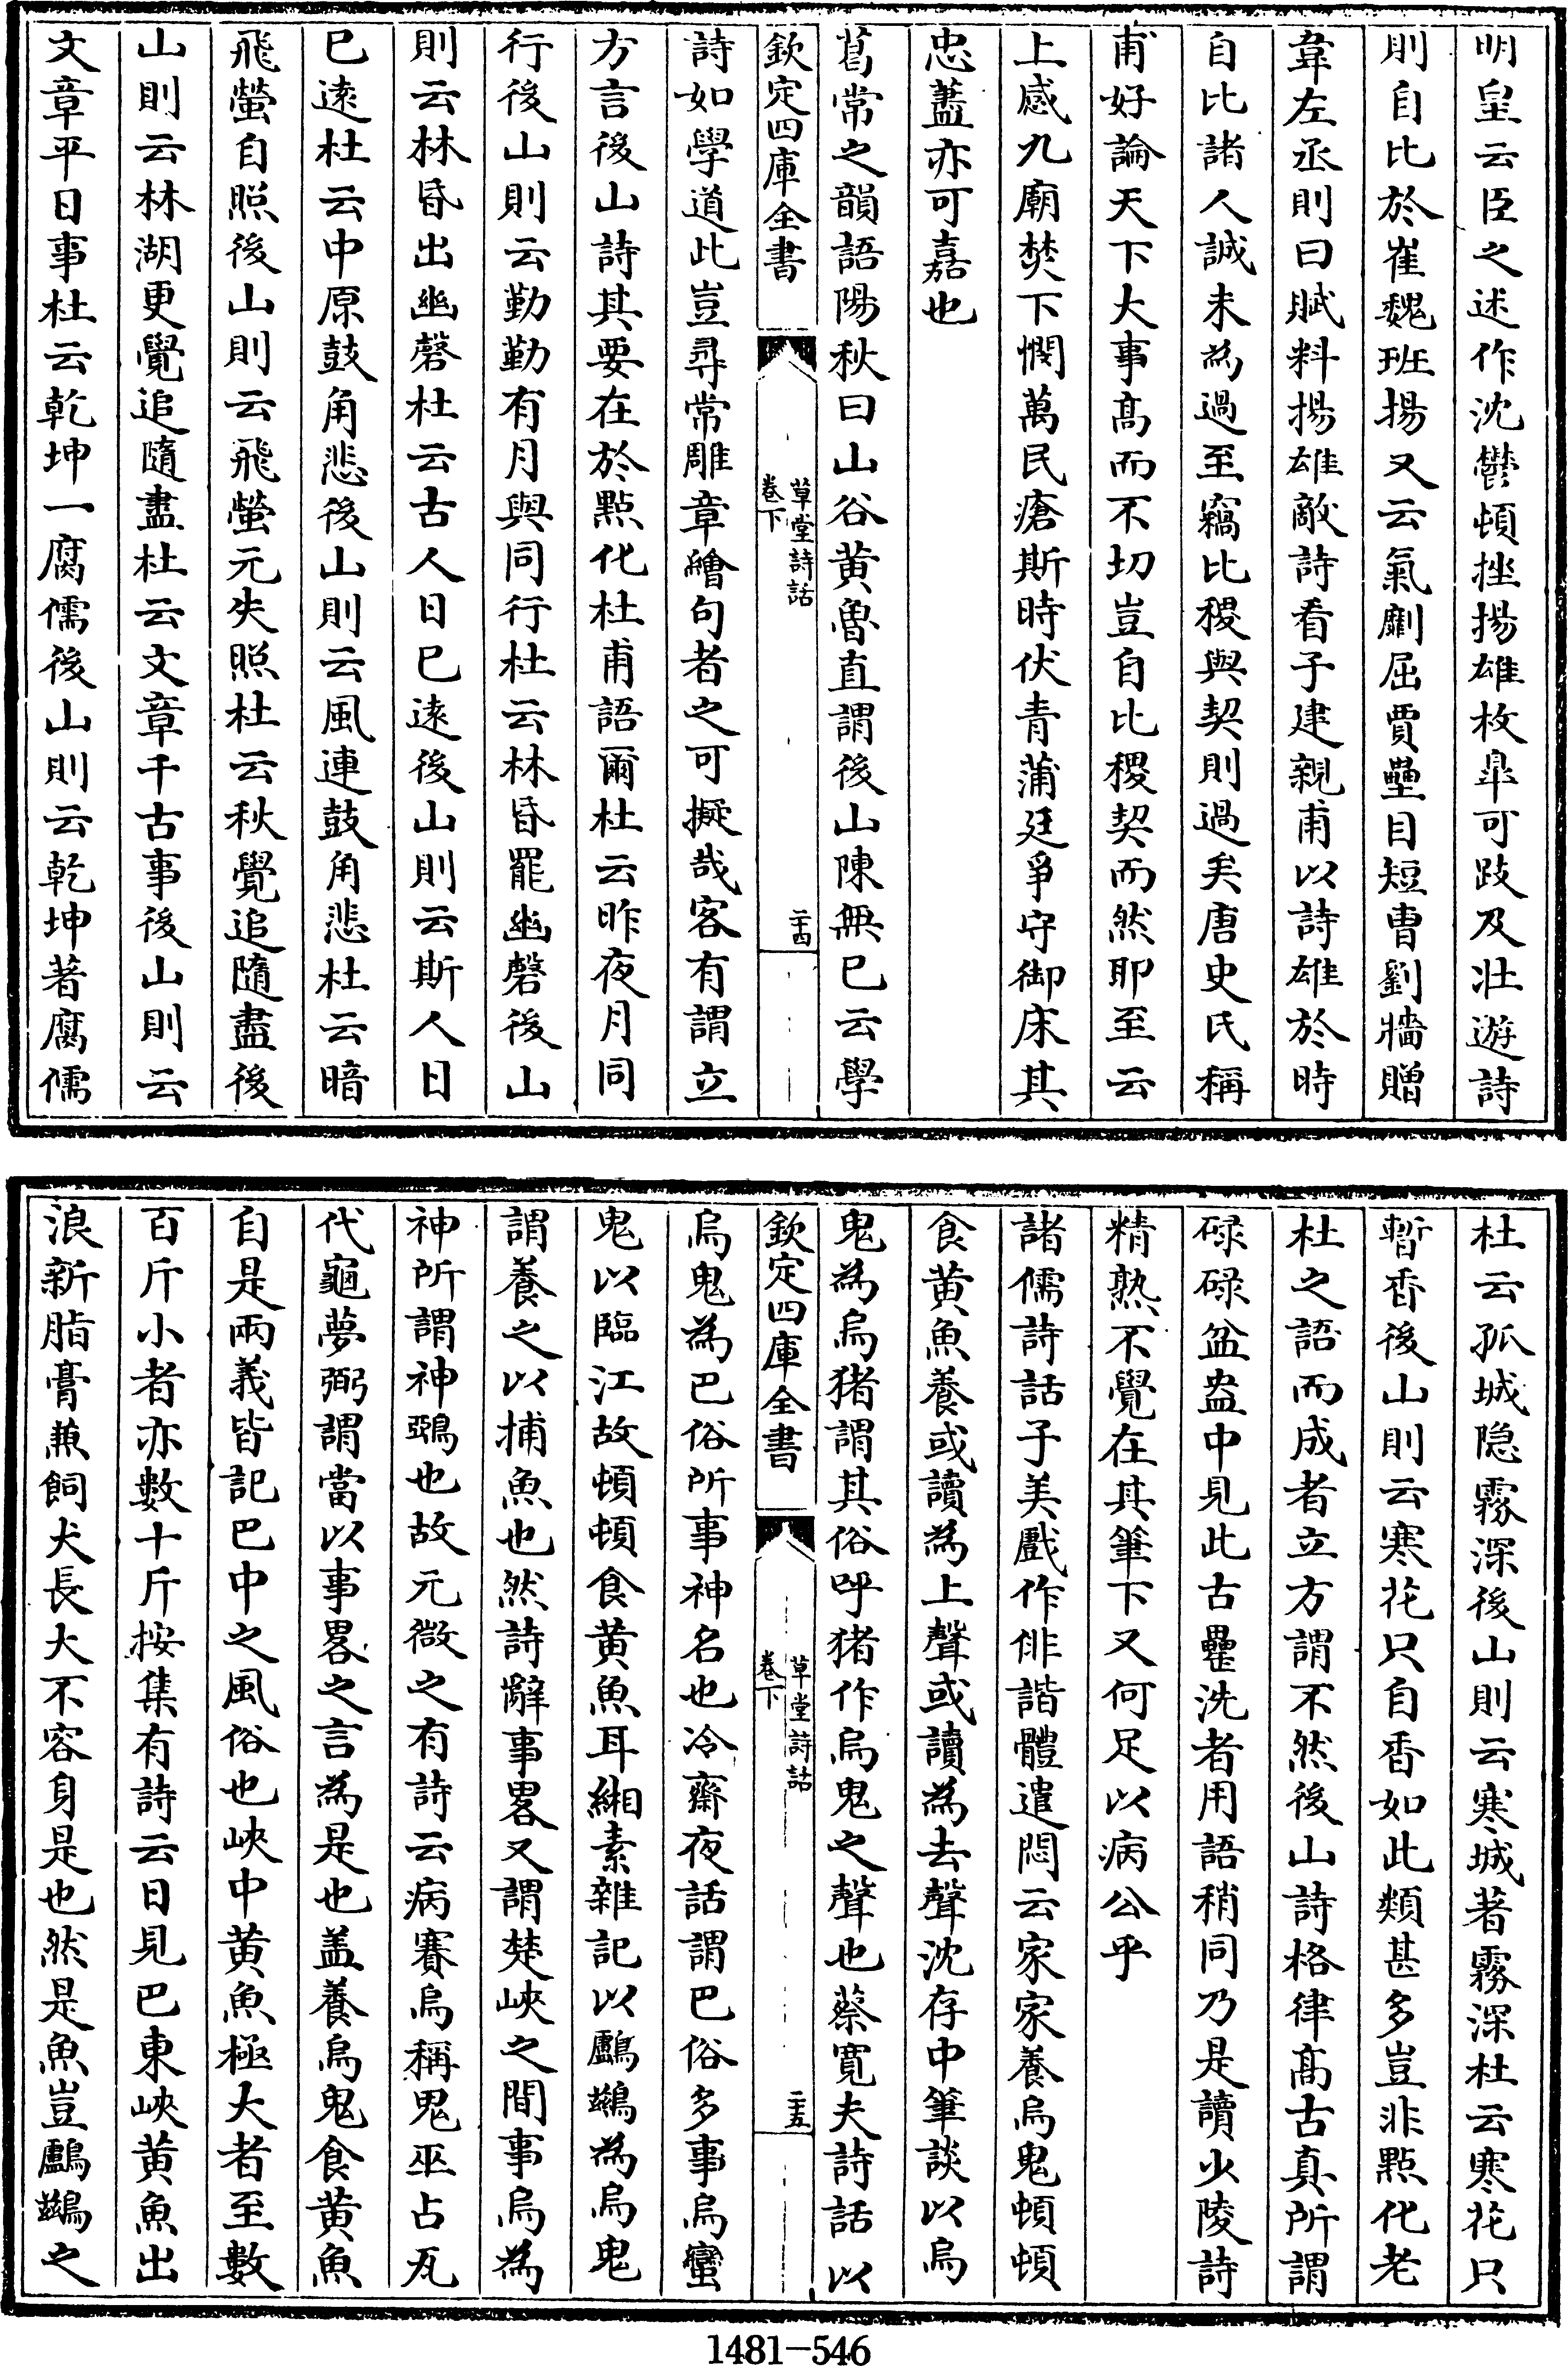 明皇云臣之述作沈鬱頓挫揚雄枚臯可跂及壯遊詩
則自比於崔魏班揚又云氣劘屈賈壘目短曹劉牆贈
韋左丞則曰賦料揚雄敵詩看子建親甫以詩雄於時
自比諸人誠未為過至竊比稷與契則過矣唐史氏稱
甫好論天下大事髙而不切豈自比稷契而然耶至云
上感九廟焚下憫萬民瘡斯時伏青蒲廷爭守御床其
忠藎亦可嘉也
葛常之韻語陽秋曰山谷黄魯直謂後山陳無巳云學
欽定四庫全書
草堂詩話
卷下
二十四
詩如學道此豈尋常雕章繪句者之可擬哉客有謂立
方言後山詩其要在於點化杜甫語爾杜云昨夜月同
行後山則云勤勤有月與同行杜云林昏罷幽磬後山
則云林昏出幽磬杜云古人日巳逺後山則云斯人日
巳逺杜云中原鼓角悲後山則云風連鼓角悲杜云暗
飛螢自照後山則云飛螢元失照杜云秋覺追隨盡後
山則云林湖更覺追隨盡杜云文章千古事後山則云
文章平日事杜云乾坤一腐儒後山則云乾坤著腐儒
杜云孤城隠霧深後山則云寒城著霧深杜云寒花只
暫香後山則云寒花只自香如此類甚多豈非點化老
杜之語而成者立方謂不然後山詩格律髙古真所謂
碌碌盆盎中見此古罍洗者用語稍同乃是讀少陵詩
精熟不覺在其筆下又何足以病公乎
諸儒詩話子美戲作俳諧體遣悶云家家養烏鬼頓頓
食黄魚養或讀為上聲或讀為去聲沈存中筆談以烏
鬼為烏猪謂其俗呼猪作烏鬼之聲也蔡寛夫詩話以
欽定四庫全書
草堂詩話
卷下
二十五
烏鬼為巴俗所事神名也冷齋夜話謂巴俗多事烏蠻
鬼以臨江故頓頓食黄魚耳緗素雜記以鸕鷀為烏鬼
謂養之以捕魚也然詩辭事畧又謂楚峽之間事烏為
神所謂神鵶也故元微之有詩云病賽烏稱鬼巫占瓦
代龜夢弼謂當以事畧之言為是也盖養烏鬼食黄魚
自是兩義皆記巴中之風俗也峽中黄魚極大者至數
百斤小者亦數十斤按集有詩云日見巴東峽黄魚出
浪新脂膏兼飼犬長大不容身是也然是魚豈鸕鷀之
1481-546